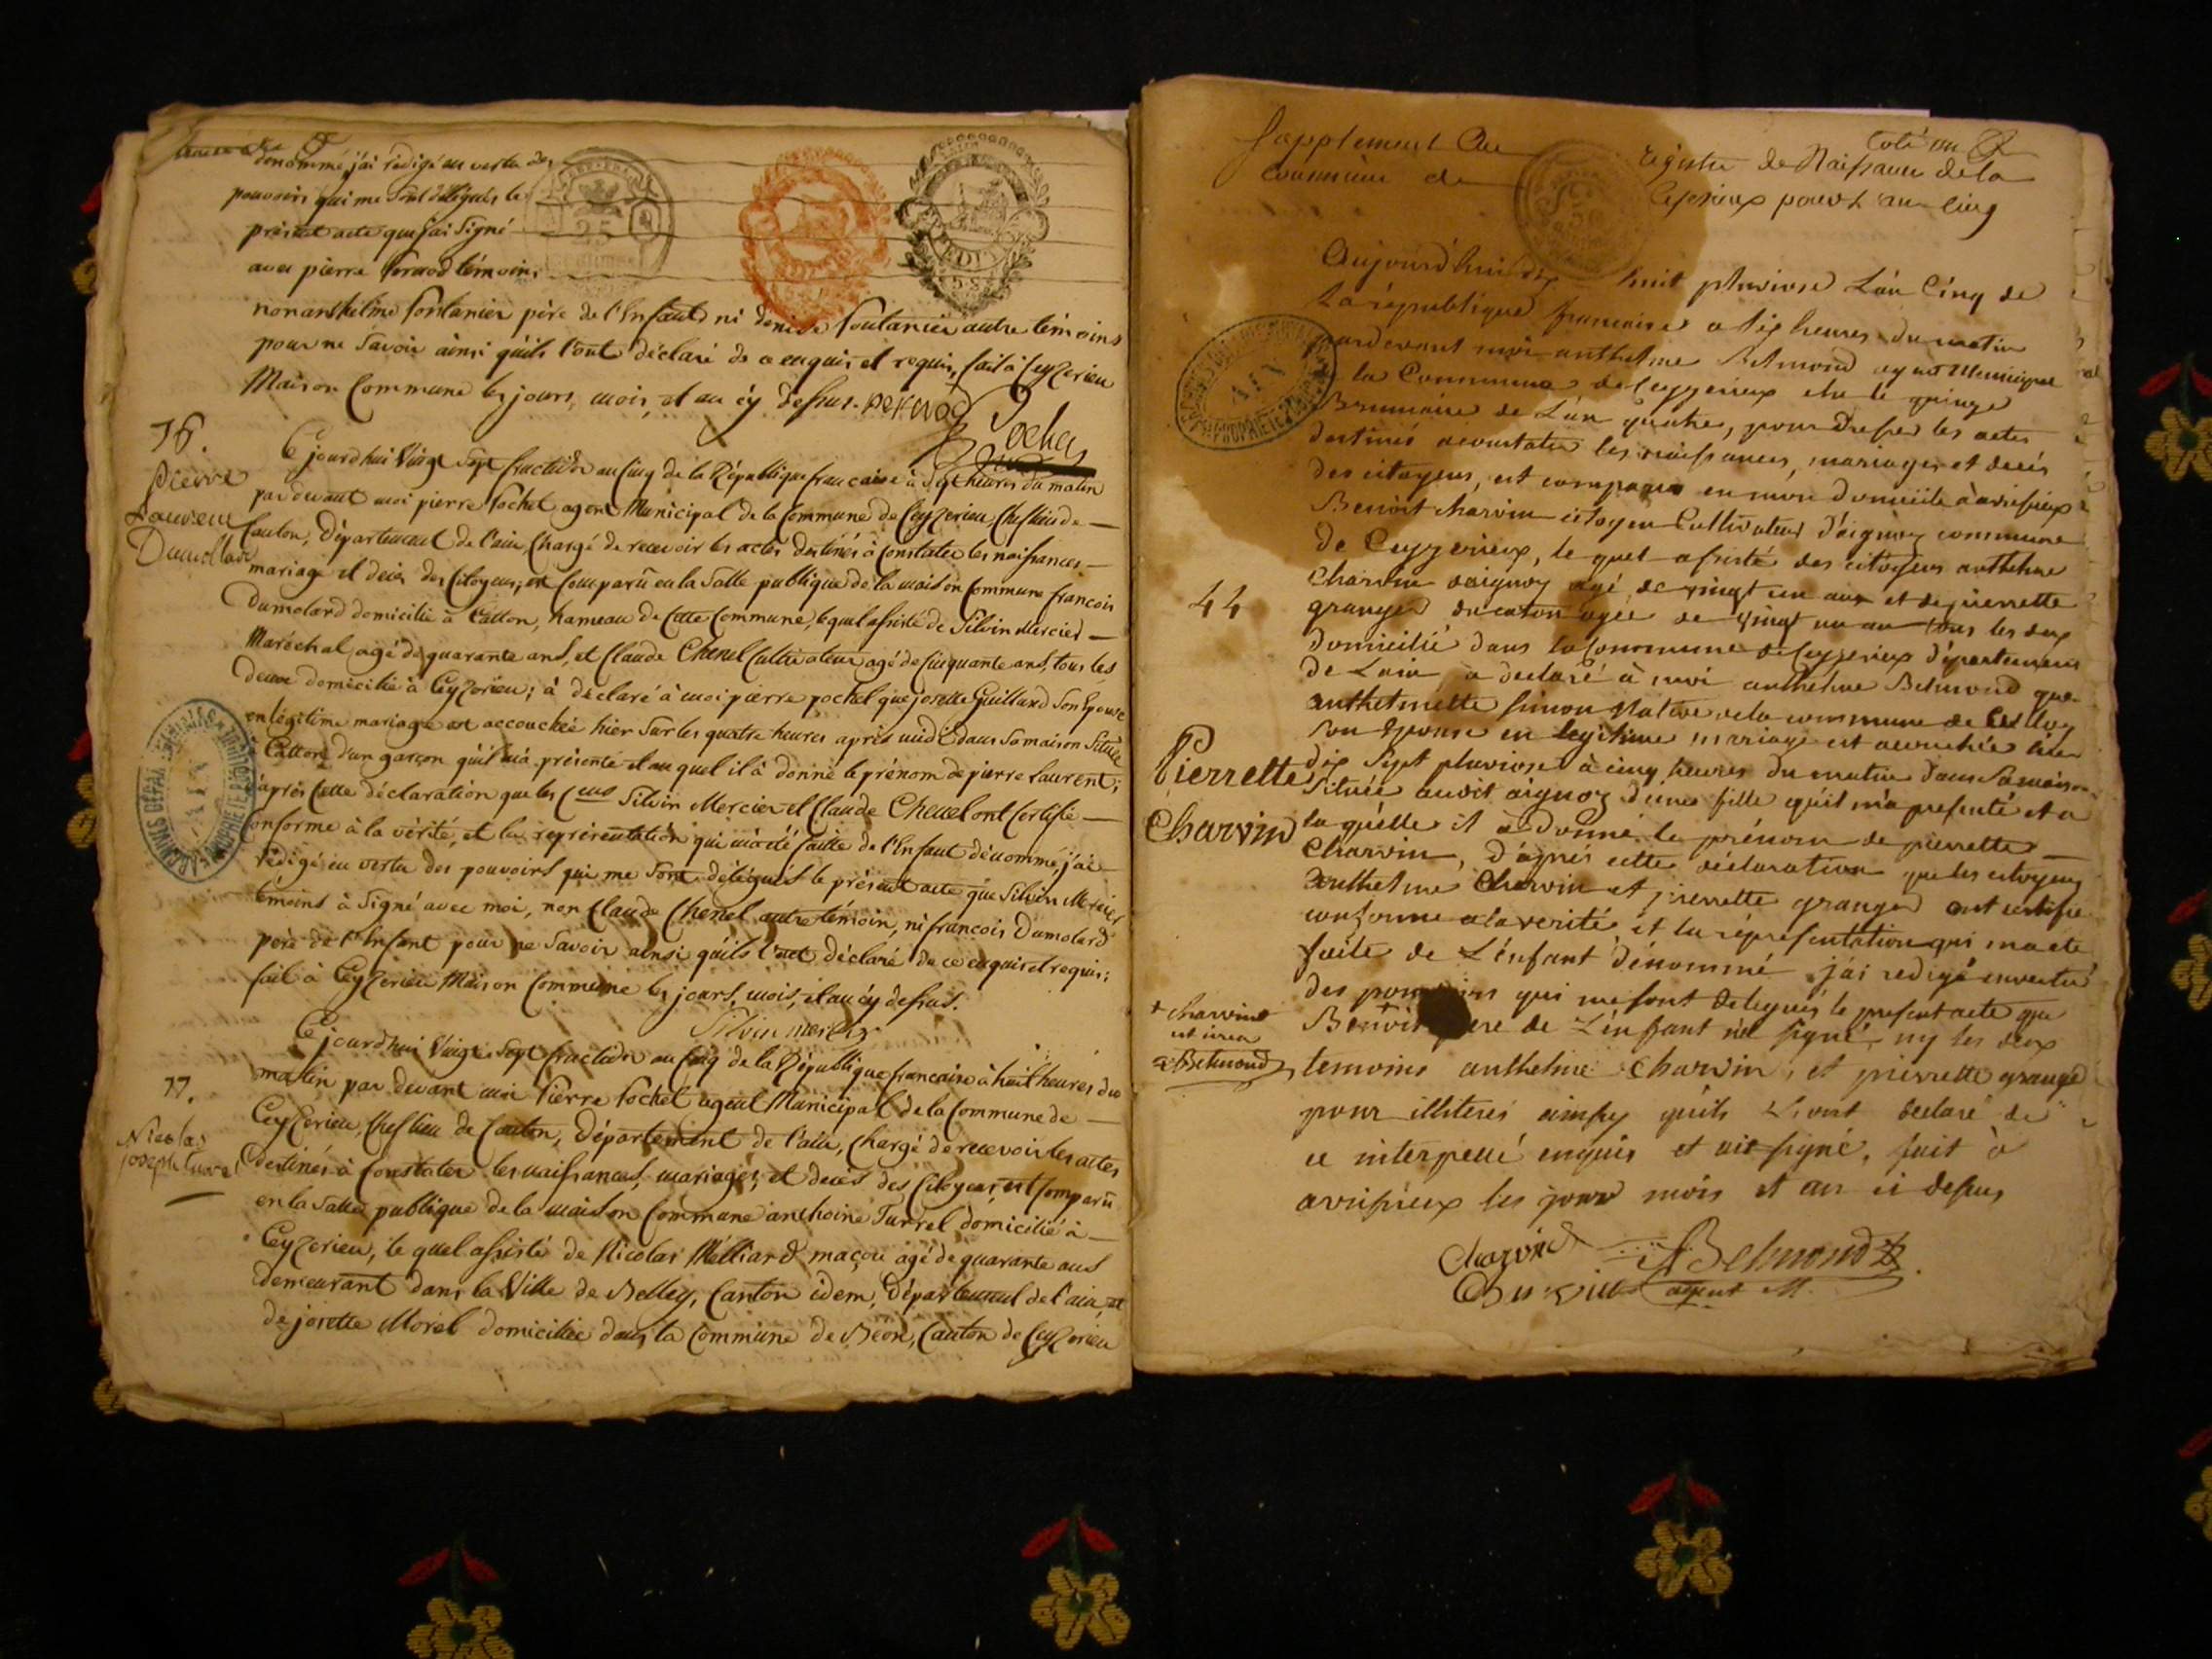 dénommé, j'ai rédigé en vertu des
pouvoirs qui me sont délégués le
présent acte que j'ai signé
avec pierre témoin,
non anthelme fontanier père de l'Enfant ni denise fontanier autre témoins
pour ne Savoir ainsi qu'ils l'ont déclaré de ce enquis et requis, fait à Ceyzerieu
Maison Commune les jours, mois, et an cy dessus.
76.
Pierre
Laurent
Dumollard
Ce jourd'hui Vingt Sept fructidor an Cinq de la République francaise à Sept heures du matin
par devant moi pierre Pochet agent Municipal de la Commune de Ceyzerieu, Cheflieu de
Canton, Département de l'ain, Chargé de recevoir les actes destinés à Constater les naissances
mariage et décès des Citoyens, est Comparu en la Salle publique de la maison Commune francois
Dumolard domicilié à Cätton, hameau de Cette Commune, lequel assisté de Silvin Mercier
Maréchal agé de quarante ans, et Claude Chenel Cultivateur agé de Cinquante ans, tous les
deux domicilié à Ceyzerieu; à déclaré à moi pierre pochet que josette Guillard Son Epouse
en légitime mariage est accouchée hier Sur les quatre heures après midi dans Sa maison Située
Cattore d'un garçon qu'il m'a présenté et au quel il à donné le prénom de pierre Laurent;
d'après Cette déclaration que les Cens Silvin Mercier et Claude Chenel ont Certifié
Conforme à la vérité, et la représentation qui m'a été faitte de l'Enfant dénommé, j'ai
rédigé en vertu des pouvoirs qui me Sont délégués le présent acte que Silvin Mercier
témoins à Signé avec moi, non Claude Chenel autre témoin, ni francois Dumolard
père de l'Enfant pour ne Savoir ainsi qu'ils l'ont déclaré de ce enquis et requis;
fait à Ceyzerieu Maison Commune les jours, mois, et an cy dessus.
Silvin mercier
77.
Nicolas
joseph turrel
Ce jourd'hui Vingt Sept fructidor an Cinq de la République francaise à huit heures du
matin par devant moi Pierre Pochet agent Municipal de la Commune de
Ceyzerieu, Cheflieu de Canton, Département de l'ain, Chargé de recevoir les actes
destinés à Constater les naissances, mariages, et decès des Citoyens, est Comparu
en la Salle publique de la maison Commune anthoine Turrel domicilié à
Ceyzerieu, le quel assisté de Nicolas Mélliard maçon agé de quarante ans
demeurant dans la Ville de Belley, Canton idem, Département de l'ain, et
de josette Morel domiciliée dans la Commune de Béon, Canton de Ceyzerieu
Supplement Au registre de Naissance de la
Commune de Ceyzerieux pour L'an Cinq
Aujourd'hui dix huit pluviose L'an Cinq de
La république francaise a dix heures du matin
pardevant moi anthelme Belmond agent Municipal
de la Commune de Ceyzerieux elu le quinze
Brumaire de L'an quatre, pour dresser les actes
destinés a constater les naissances, mariages et decès
des citoyens, est comparu en mon domicile à avrissieux
Benoit charvin citoyen Cultivateur d'aignoz commune
de Ceyzerieux, le quel assisté des citoyens anthelme
Charvin daignoz agé de vingt un ans et de pierrette
granger agée de vingt un an tous les deux
domicilié dans la Commune de Ceyzerieux département
de Lain a declaré à moi anthelme Belmond que
anthelmette Simon Native de la commune de
son Epouse en legitime mariage est accouchée hier
dix Sept pluviose à cinq heures du matin dans Sa maison
Située audit aignoz d'une fille qu'il m'a presenté et a
la quelle il a donné le prénom de pierrette
Charvin, d'après cette déclaration que les citoyens
anthelme Charvin et pierrette granger ont certifié
conforme a la verité et la répresentation qui m'a été
faite de L'enfant dénommé j'ai redigé en vertu
des pouvoirs qui me sont delegués le present acte que
Benoit pere de L'enfant n'a signé, ny les deux
temoins anthelme Charvin, et pierrette grangé
pour illiterés qu'ils L'ont declaré de
ce interpellé enquis et ait signé, fait à
avrissieux les jour mois et an ci dessus
44
Pierrette
Charvin
+ Charvin
A Belmond
Charvin
A Belmond
agent M.
ARCHIVES DÉPAL
AIN
PROPRIÉTÉ PUBLIQUE
25